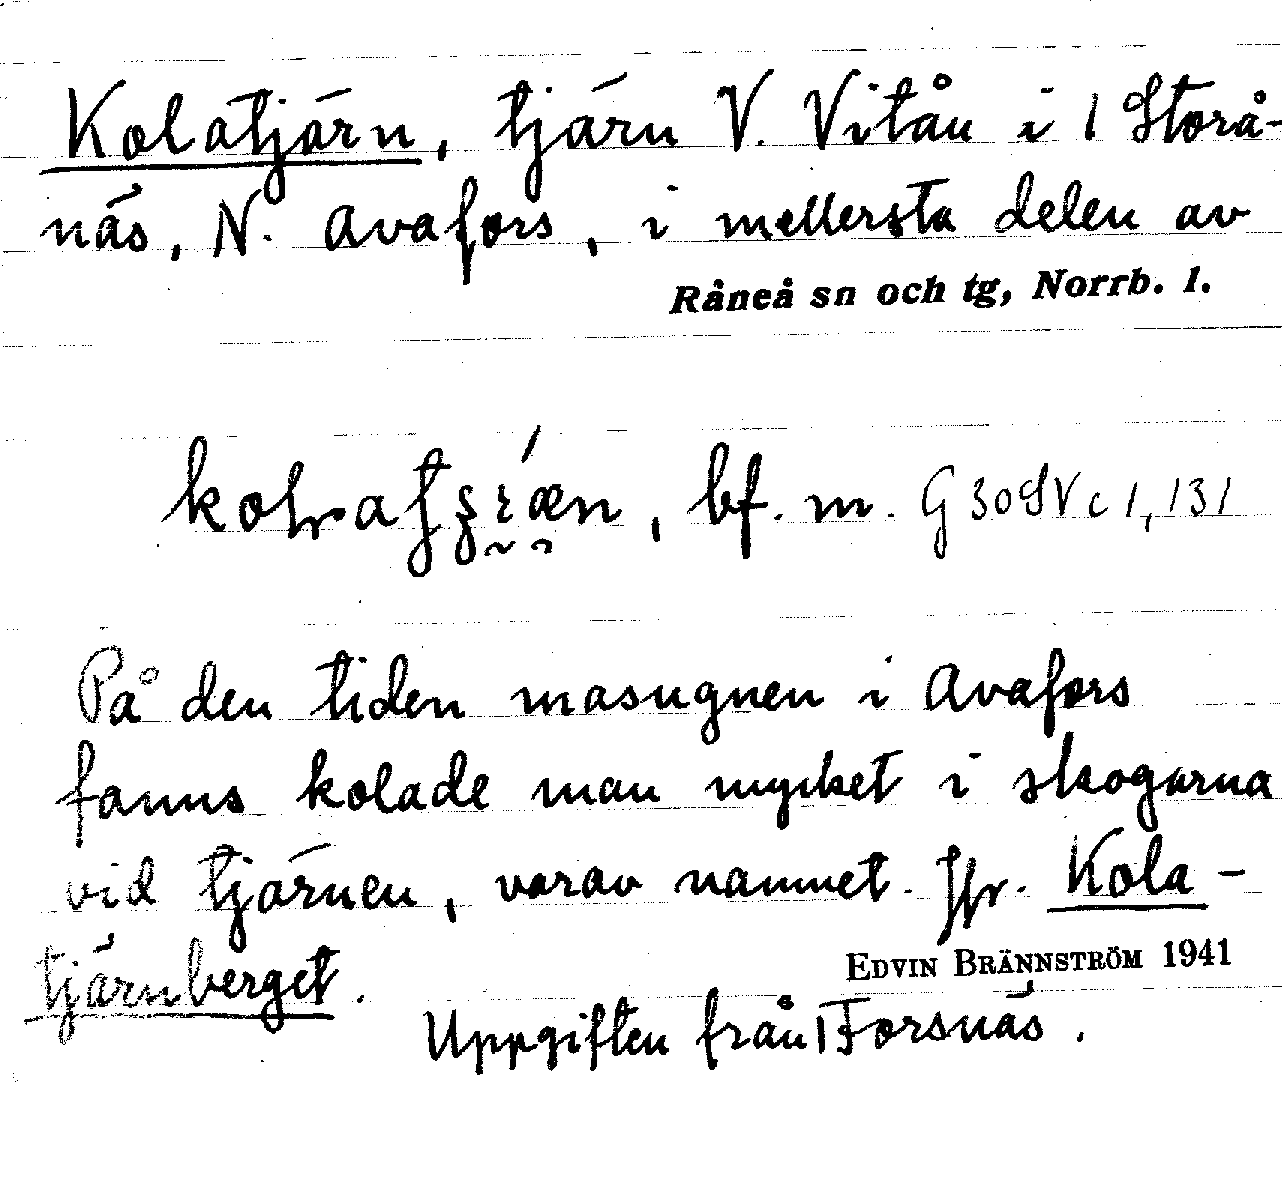 Kolatjärn, tjärn V. Vitån i 1 Storå-
näs, N. Avafors, i mellersta delen av
Råneå sn och tg, Norrb. l.
bf. m. G 30 SV c 1, 131
På den tiden masugnen i Avafors
fanns kolade man mycket i skogarna
vid tjärnen, varav namnet. Jfr. Kola-
tjärnberget.
EDVIN BRÄNNSTRÖM 1941
Uppgiften från 1 Forsnäs.